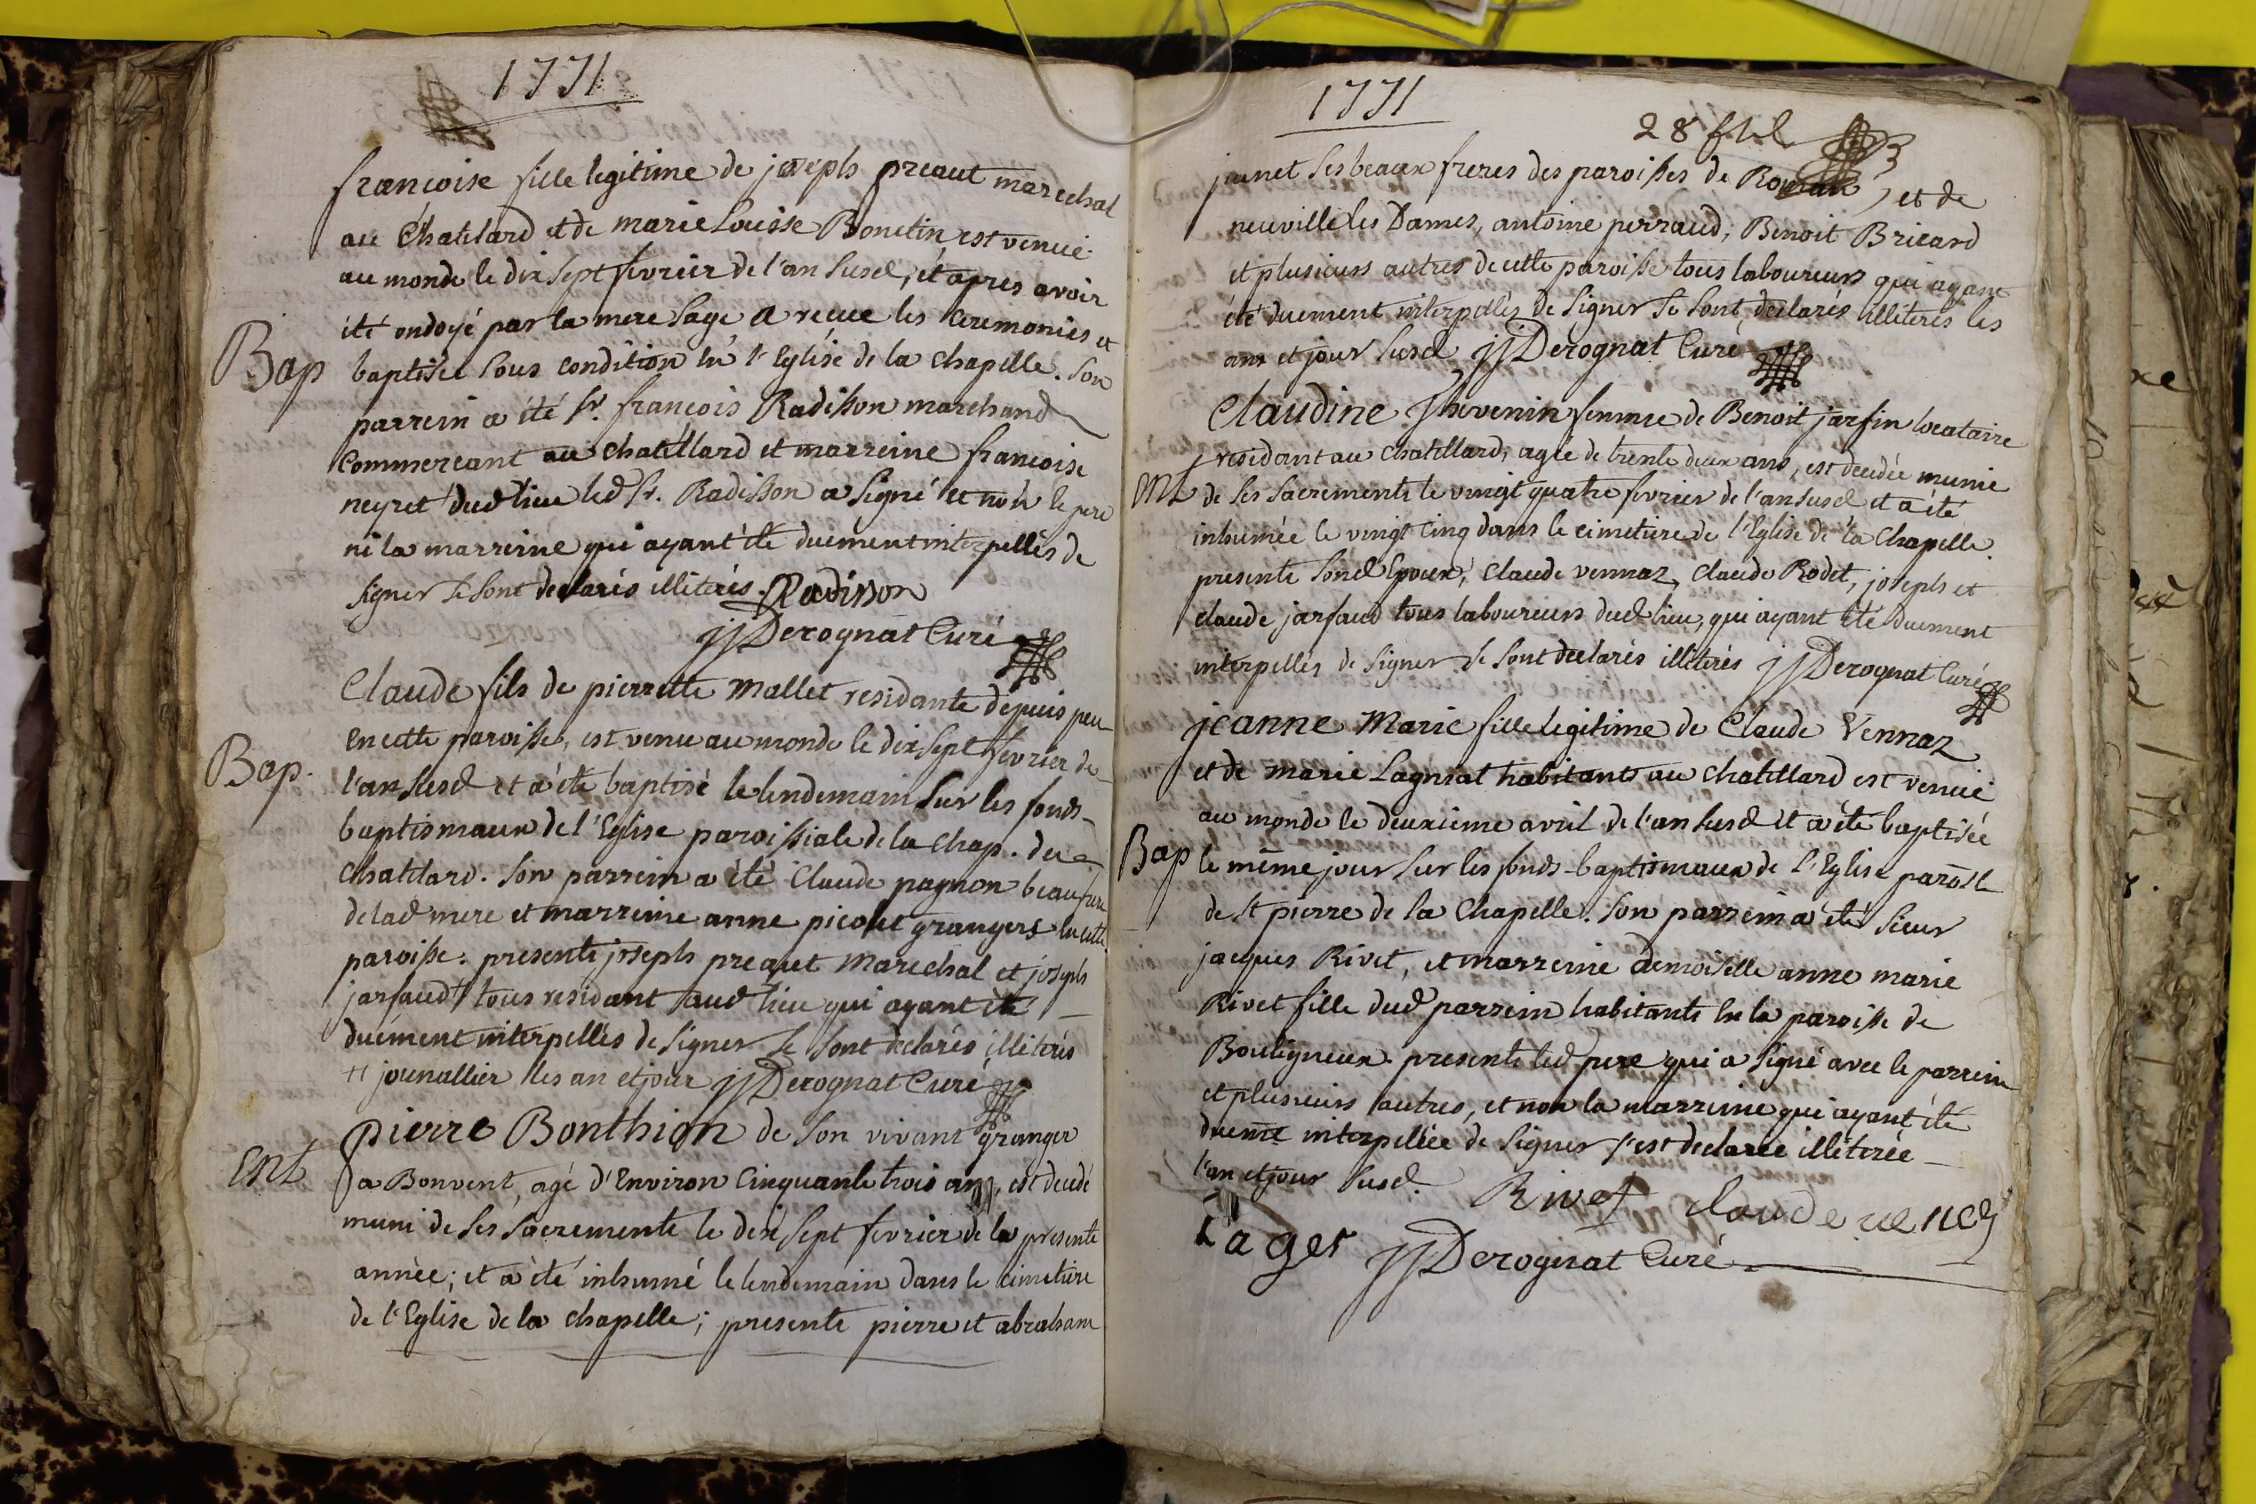 1771
françoise fille legitime de joseph preaut marechal
au Chatelard et de marie Louisse Bonetin est venuë
au monde le dix sept fevrier de l'an susd, et apres avoir
été ondoyé par la mere sage a recue les Ceremonies et
Bap
baptisée sous condition en l'Eglise de la Chapelle. son
parrein a été Sr. françois Radisson marchand
Commercant au chatellard et marreine francoise
neyret dud lieu led Sr. Radisson a signé et non le pere
ni la marreine qui ayant été duement interpellés de
signer se sont declarés illiterés. Radisson
jj Derognat Curé
Claude fils de pierrette Mallet residante depuis peu
en cette paroisse, est venu au monde le dix sept fevrier de
Bap.
l'an susd et a été baptisé le lendemain sur les fonds
baptismaux de l'Eglise paroissiale de la Chap. du
Chatelard. son parrein a été Claude pagnon beaufrere
de lad mere et marreine anne picolet grangers en cette
paroisse. presents joseph preaut Marechal et joseph
jarfaud # tous residant aud lieu qui ayant été
duement interpellés de signer se sont declarés illiterés
# jounallier les an et jour jj Derognat Curé
pierre Bonthion de son vivant granger
Ent
a Bonvent, agé d'Environ Cinquante trois ans, est decedé
muni de ses sacrements le dix sept fevrier de la presente
année; et a été inhumé le lendemain dans le cimetiere
de l'Eglise de la chapelle; presents pierre et abraham
1771
28
janet ses beaux freres des paroisses de Roman, et de
neuville les Dames, antoine perraud, Benoit Bricard
et plusieurs autres de cette paroisse tous laboureurs qui ayant
été duement interpellés de signer se sont declarés illiterés les
an et jour susd jj Derognat Curé
Claudine Thevenin femme de Benoit jarfin locataire
residant au Chatellard, agée de trente deux ans, est decedée munie
Ent
de ses sacrements le vingt quatre fevrier de l'an susd et a été
inhumée le vingt cinq dans le cimetiere de l'Eglise de la Chapelle
presents sond Epoux, Claude vennaz, Claude Rodet, joseph et
claude jarfaud tous laboureurs dud lieu, qui ayant été duement
interpellés de signer se sont declarés illiterés jj Derognat Curé
jeanne Marie fille legitime de Claude Vennaz
et de marie Lagniat habitants au chatellard est venuë
au monde le deuxieme avril de l'an susd et a été baptisée
Bap
le même jour sur les fonds-baptismaux de l'Eglise
de St pierre de la Chapelle. son parrein a été sieur
jacques Rivet, et marreine demoiselle anne marie
Rivet fille dud parrein habitants en la paroisse de
Bouligneux presents led pere qui a signé avec le parrein
et plusieurs autres, et non la marreine qui ayant été
duemt interpellée de signer s'est declarée illiterée
l'an et jour susd. Rivet Claude venaz
Lager jj Derognat Curé